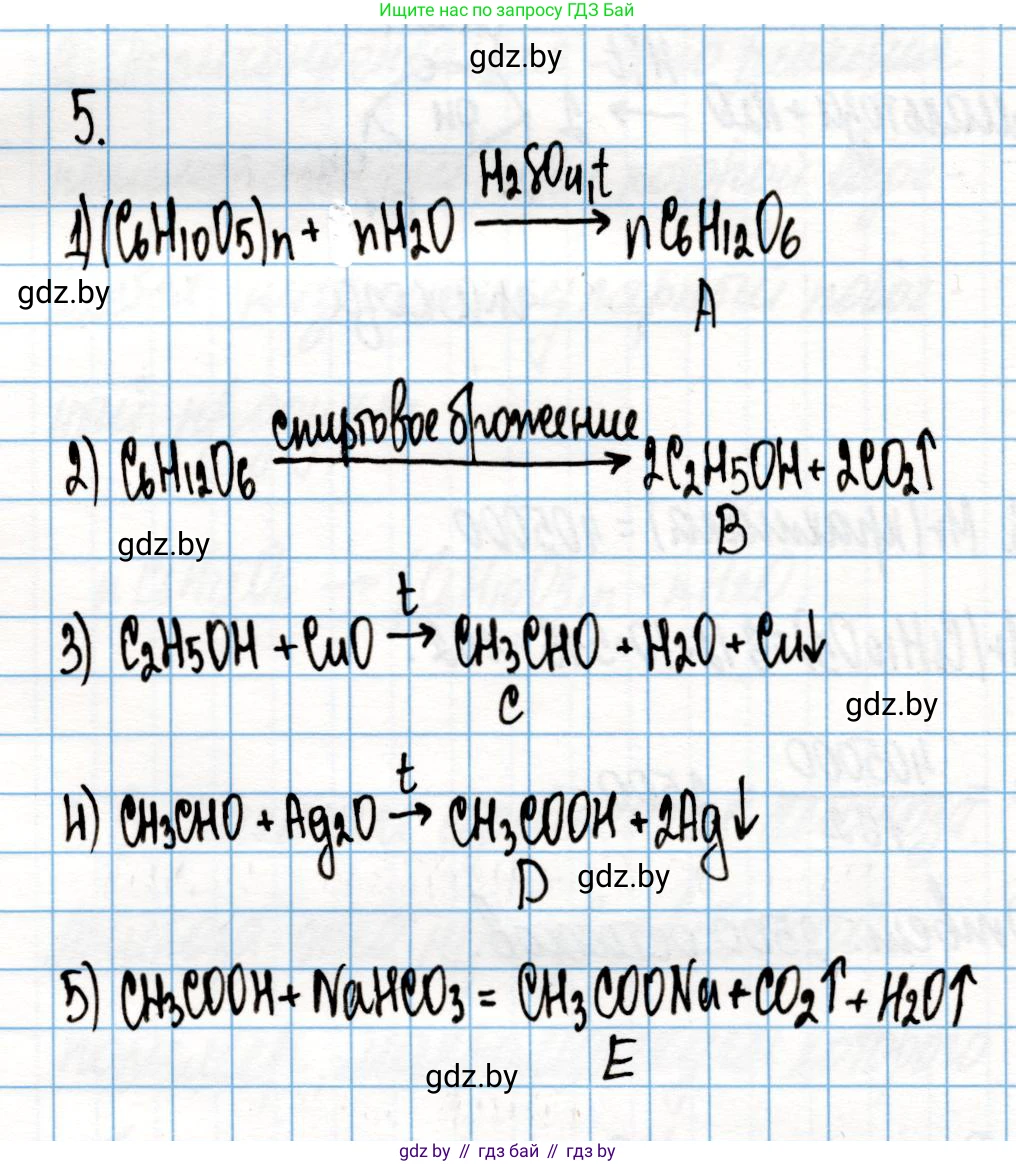 Ищите нас по запросу ГДЗ Бай
gdz.by
5.
H2SO4, t
1) (C6H10O5)n + nH2O → nC6H12O6
gdz.by
A
спиртовое брожение
2) C6H12O6 → 2C2H5OH + 2CO2↑
B
gdz.by
t
3) C2H5OH + CuO → CH3CHO + H2O + Cu↓
C
gdz.by
t
4) CH3CHO + Ag2O → CH3COOH + 2Ag↓
D
gdz.by
5) CH3COOH + NaHCO3 = CH3COONa + CO2↑ + H2O↑
E
gdz.by
gdz.by // гдз бай // gdz by